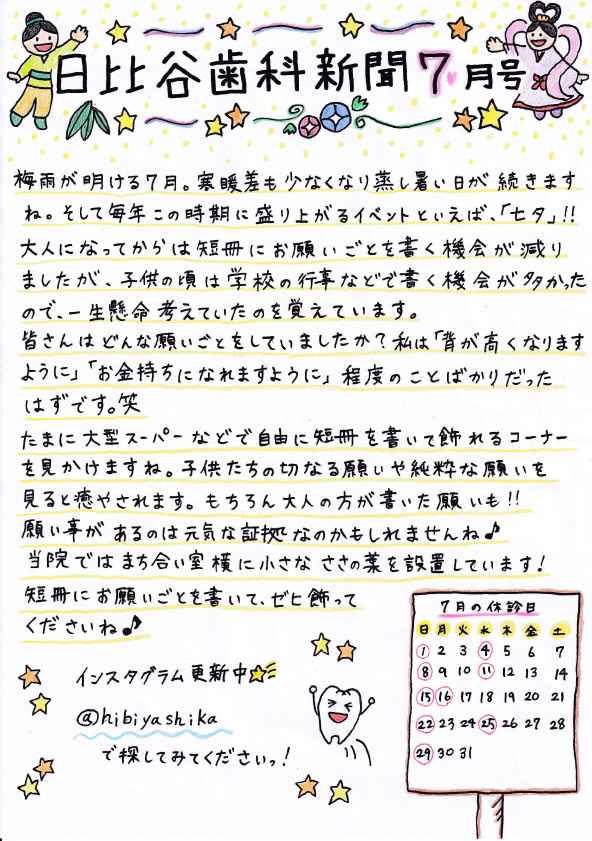 日比谷歯科新聞7月号
梅雨が明ける7月。寒暖差も少なくなり蒸し暑い日が続きます
ね。そして毎年この時期に盛り上がるイベントといえば、「七夕」!!
大人になってからは短冊にお願いごとを書く機会が減り
ましたが、子供の頃は学校の行事などで書く機会が多かった
ので、一生懸命考えていたのを覚えています。
皆さんはどんな願いごとをしていましたか?私は「背が高くなります
ように」「お金持ちになれますように」程度のことばかりだった
はずです。笑
たまに大型スーパーなどで自由に短冊を書いて飾れるコーナー
を見かけますね。子供たちの切なる願いや純粋な願いを
見ると癒やされます。もちろん大人の方が書いた願いも!!
願い事があるのは元気な証拠なのかもしれませんね♪
当院ではまち合い室横に小さなささの葉を設置しています!
短冊にお願いごとを書いて、ゼヒ飾って
くださいね♪
インスタグラム更新中
@hibiyashika
で探してみてくださいっ!
7月の休診日
日 月 火 水 木 金 土
1 2 3 4 5 6 7
8 9 10 11 12 13 14
15 16 17 18 19 20 21
22 23 24 25 26 27 28
29 30 31